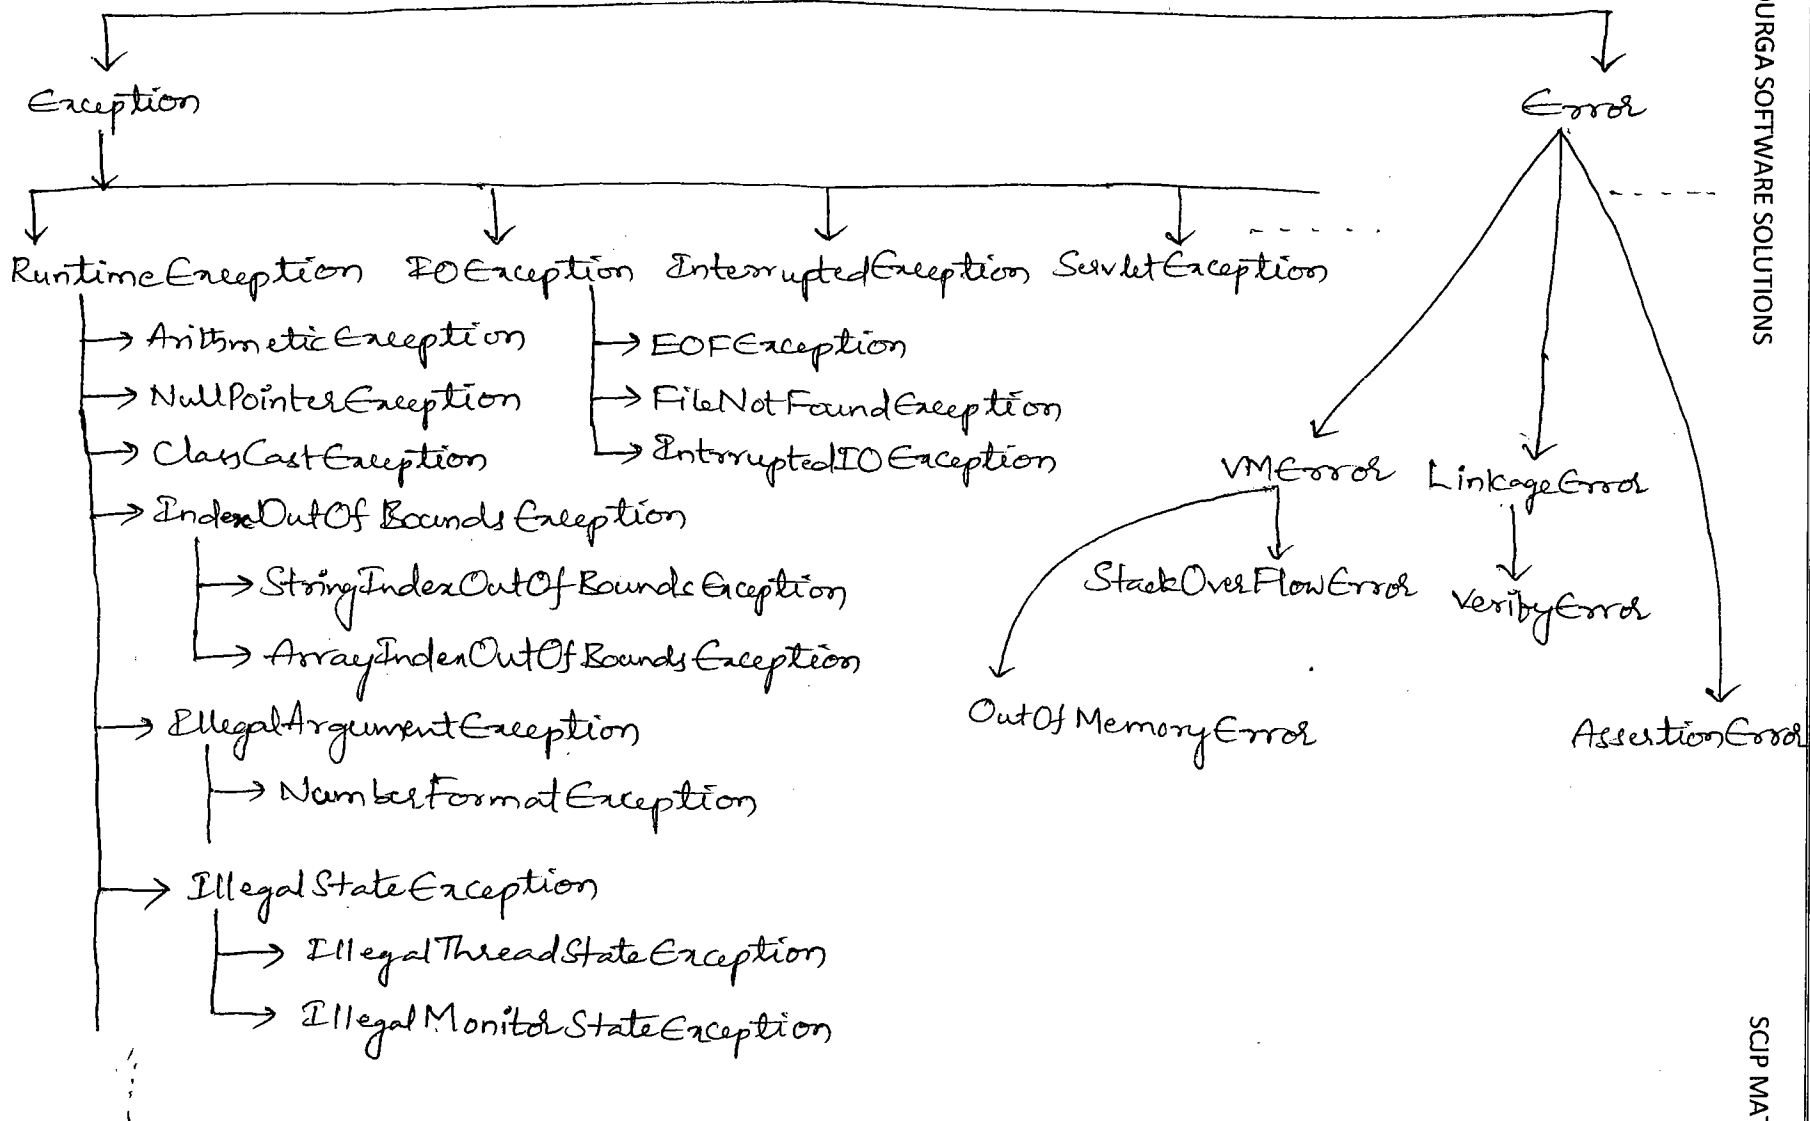 Exception
Error
RuntimeException
IOException
InterruptedException
ServletException
ArithmeticException
NullPointerException
ClassCastException
IndexOutOfBoundsException
StringIndexOutOfBoundsException
ArrayIndexOutOfBoundsException
IllegalArgumentException
NumberFormatException
IllegalStateException
IllegalThreadStateException
IllegalMonitorStateException
EOFException
FileNotFoundException
IntrruptedIOException
VMError
LinkageError
StackOverFlowError
VerifyError
OutOfMemoryError
AssertionError
DURGA SOFTWARE SOLUTIONS
SCJP MAT